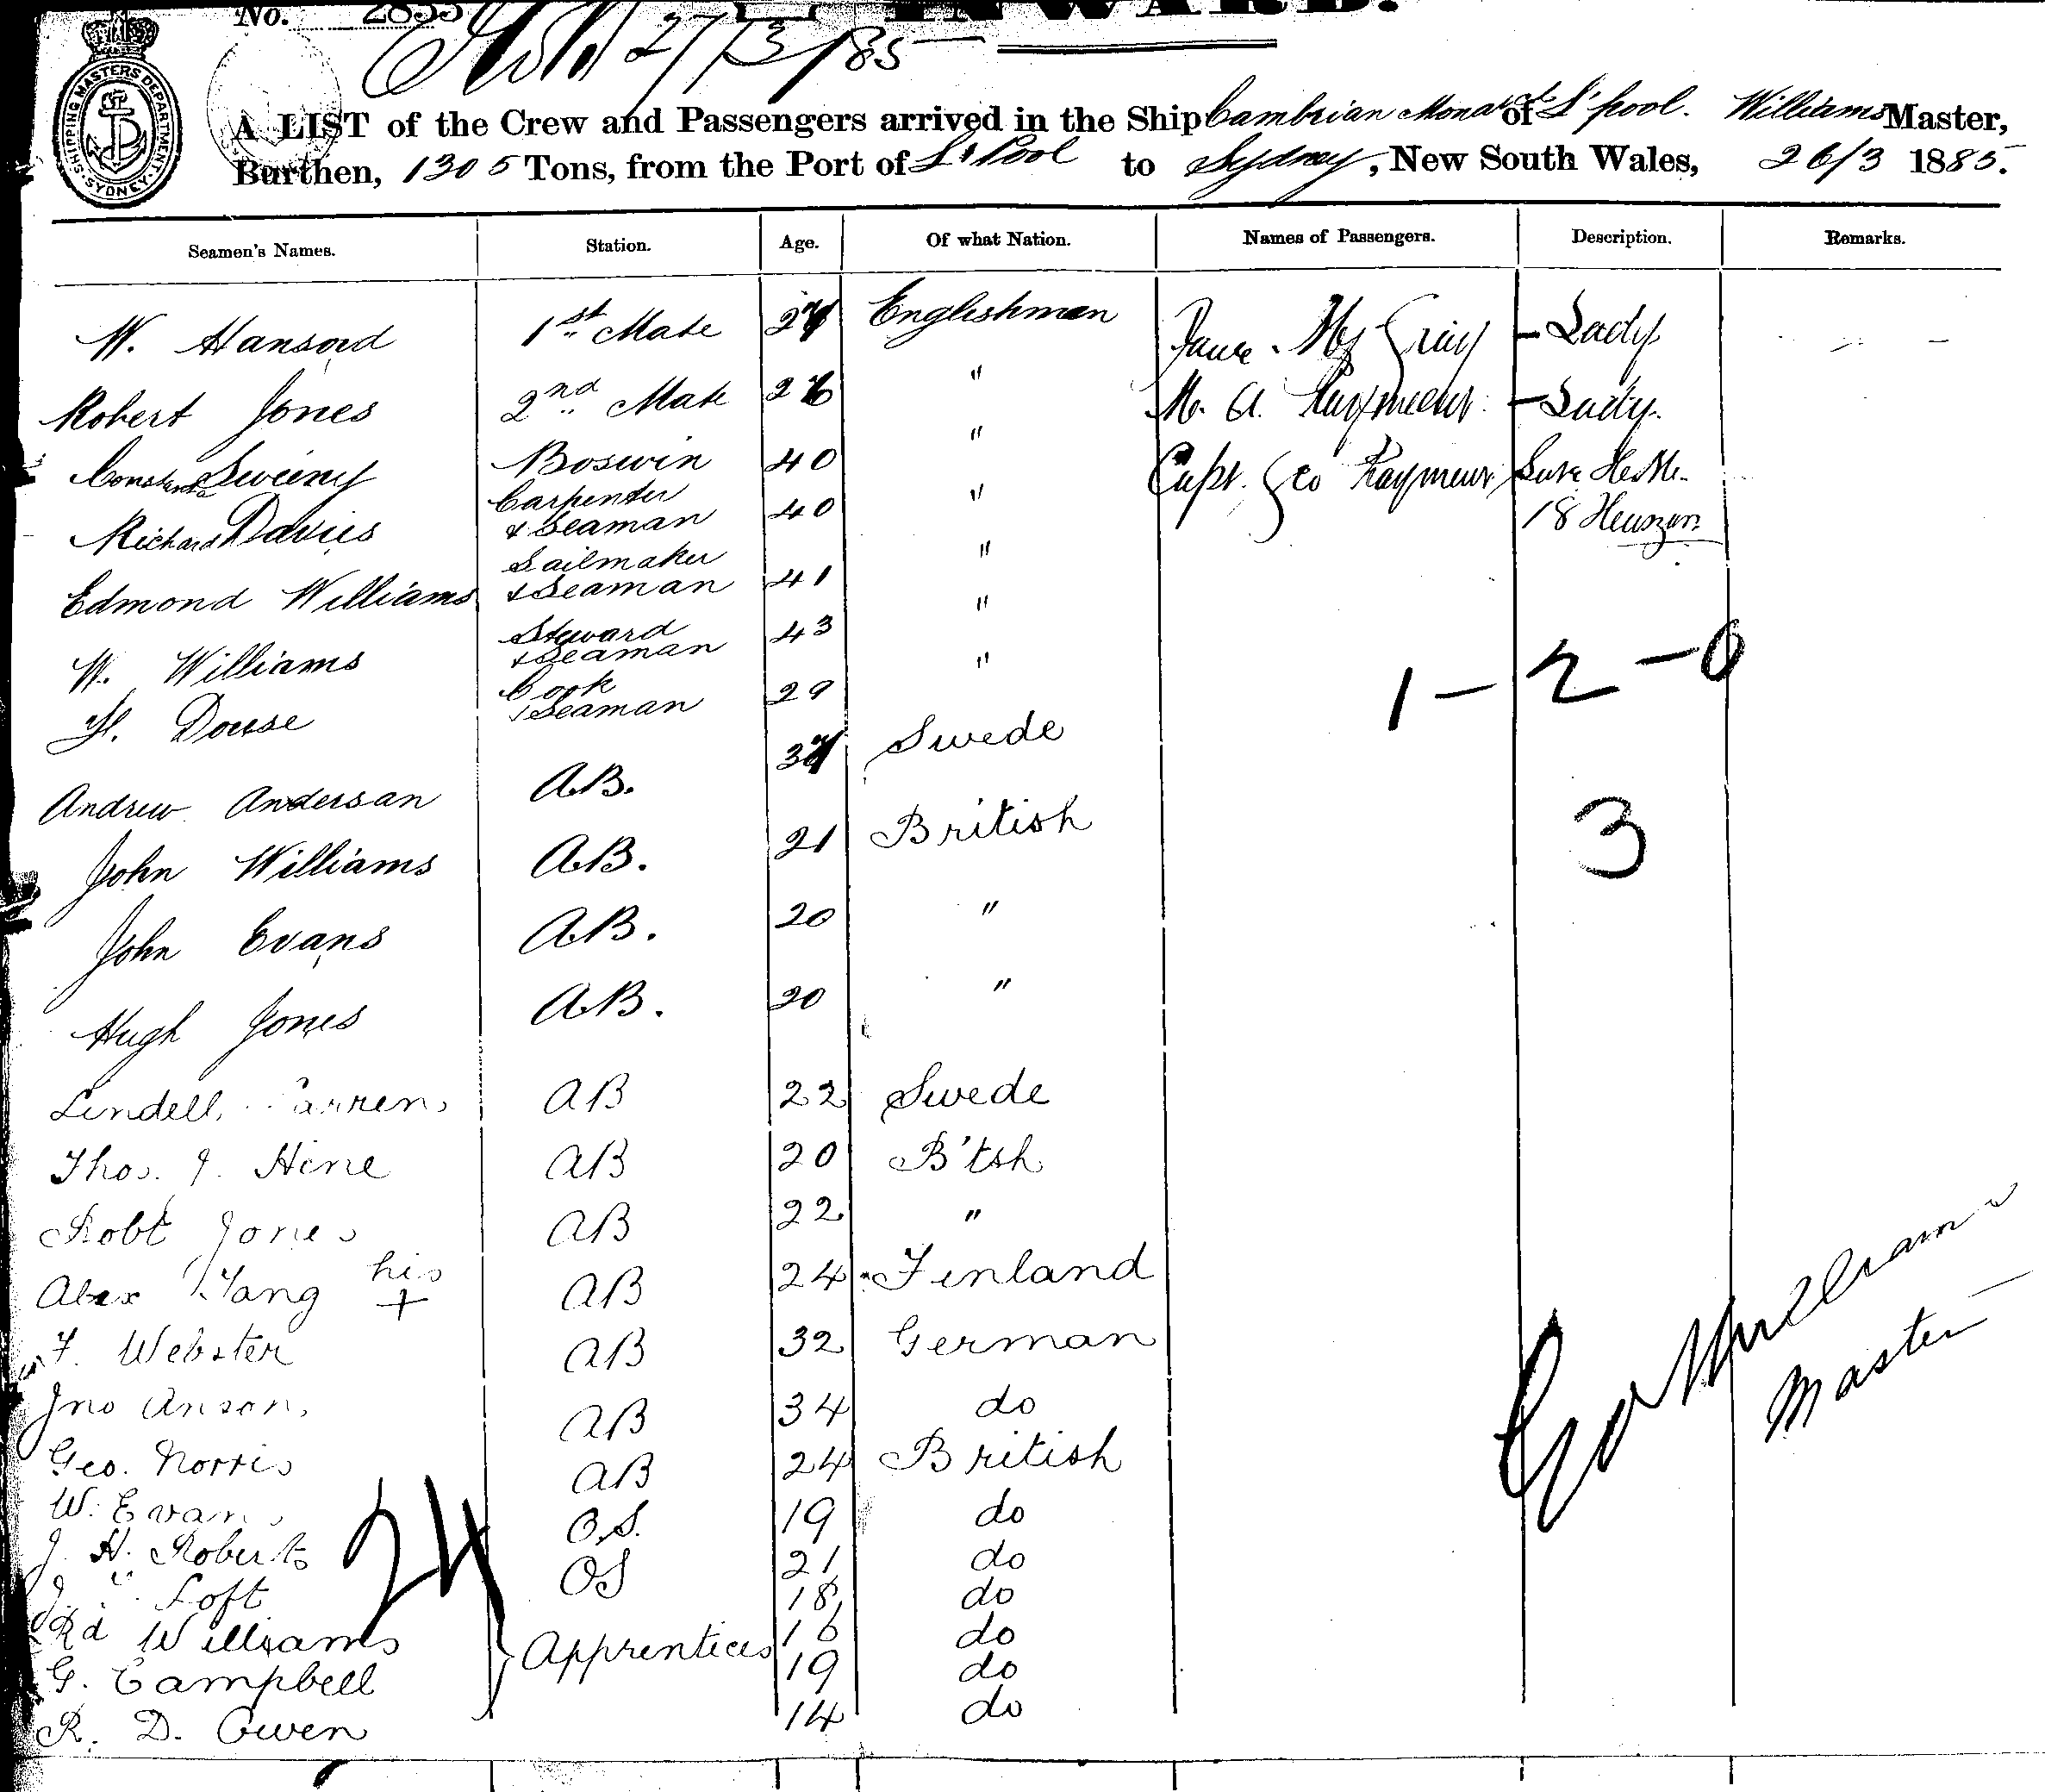 No. 2855 INWARD.
27/3/85
SHIPPING MASTERS DEPARTMENT. SYDNEY.
A LIST of the Crew and Passengers arrived in the Ship Cambrian Mona of L'pool. Williams Master,
Burthen, 1305 Tons, from the Port of L'Pool to Sydney, New South Wales, 26/3 1885.
Seamen's Names. Station. Age. Of what Nation. Names of Passengers. Description. Remarks.
W. Hansord 1st Mate 27 Englishman Lady
Robert Jones 2nd Mate 26 " M. A. Lady
Sweeny Boswin 40 " Capt. Geo Rayment
Richard Davies Carpenter & Seaman 40 " 18
Edmond Williams Sailmaker & Seaman 41 "
W. Williams Steward & Seaman 43 "
H. Douse Cook & Seaman 29 "
1 - 2 - 0
Andrew Andersan A.B. Swede
3
John Williams A.B. 21 British
John Evans A.B. 20 "
Hugh Jones A.B. 20 "
Lindell AB 22 Swede
Thos. J. Hine AB 20 B'tsh
Robt Jones AB 22 "
Alex Yang his + AB 24 Finland
F. Webster AB 32 German
Jno Anson AB 34 do
Geo. Norris AB 24 British
W. Evans O.S. 19 do
J. H. Roberts OS 21 do
J. Loft 18 do
Rd Williams Apprentices 16 do
G. Campbell 19 do
R. D. Owen 14 do
24
Williams
Master